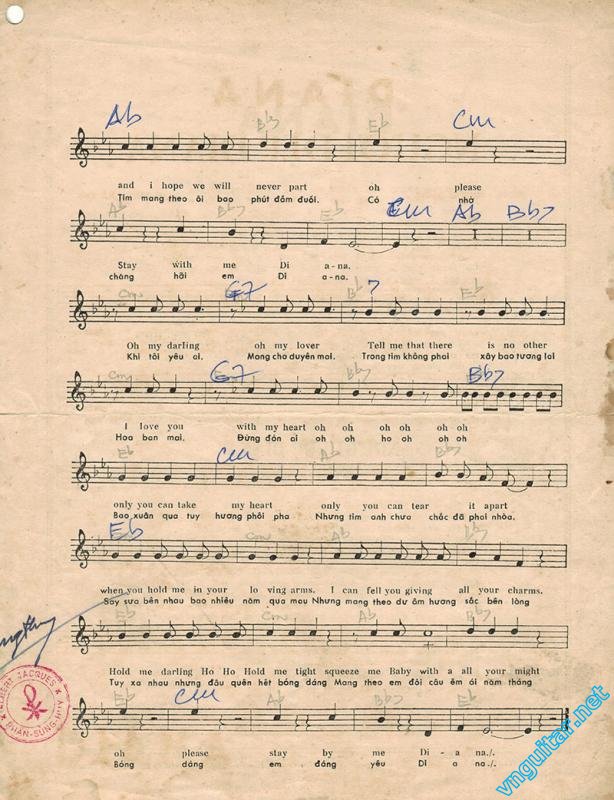 Ab Bb7 Eb Cm
and i hope we will never part oh please
Tim mang theo ôi bao phút đắm đuối. Có nhớ
Ab Bb7 Eb Cm Ab Bb7
Stay with me Di a-na.
chàng hỡi em Di a-na.
Cm G7 Bb 7 Eb
Oh my darling oh my lover Tell me that there is no other
Khi tôi yêu ai. Mang cho duyên mai. Trong tim không phai xây bao tương lai
Cm G7 Bb7 Bb7
I love you with my heart oh oh oh oh oh oh
Hoa ban mai. Đừng đón ai oh oh ho oh oh oh
Eb Cm Ab Bb7
only you can take my heart only you can tear it apart
Bao xuân qua tuy hương phôi pha Nhưng tim anh chưa chắc đã phai nhòa.
Eb Cm Ab Bb7
when you hold me in your lo ving arms. I can fell you giving all your charms.
Say sưa bên nhau bao nhiêu năm qua mau Nhưng mang theo dư âm hương sắc bên lòng
Eb Cm Ab Bb7
Hold me darling Ho Ho Hold me tight squeeze me Baby with a all your might
Tuy xa nhau nhưng đâu quên hết bóng dáng Mang theo em đôi câu êm ái năm tháng
Eb Cm Ab Bb7 Eb
oh please stay by me Di - a - na./.
Bóng dáng em đáng yêu Di a na./.
JACQUES
PHAN-SUNG
vnguitar.net